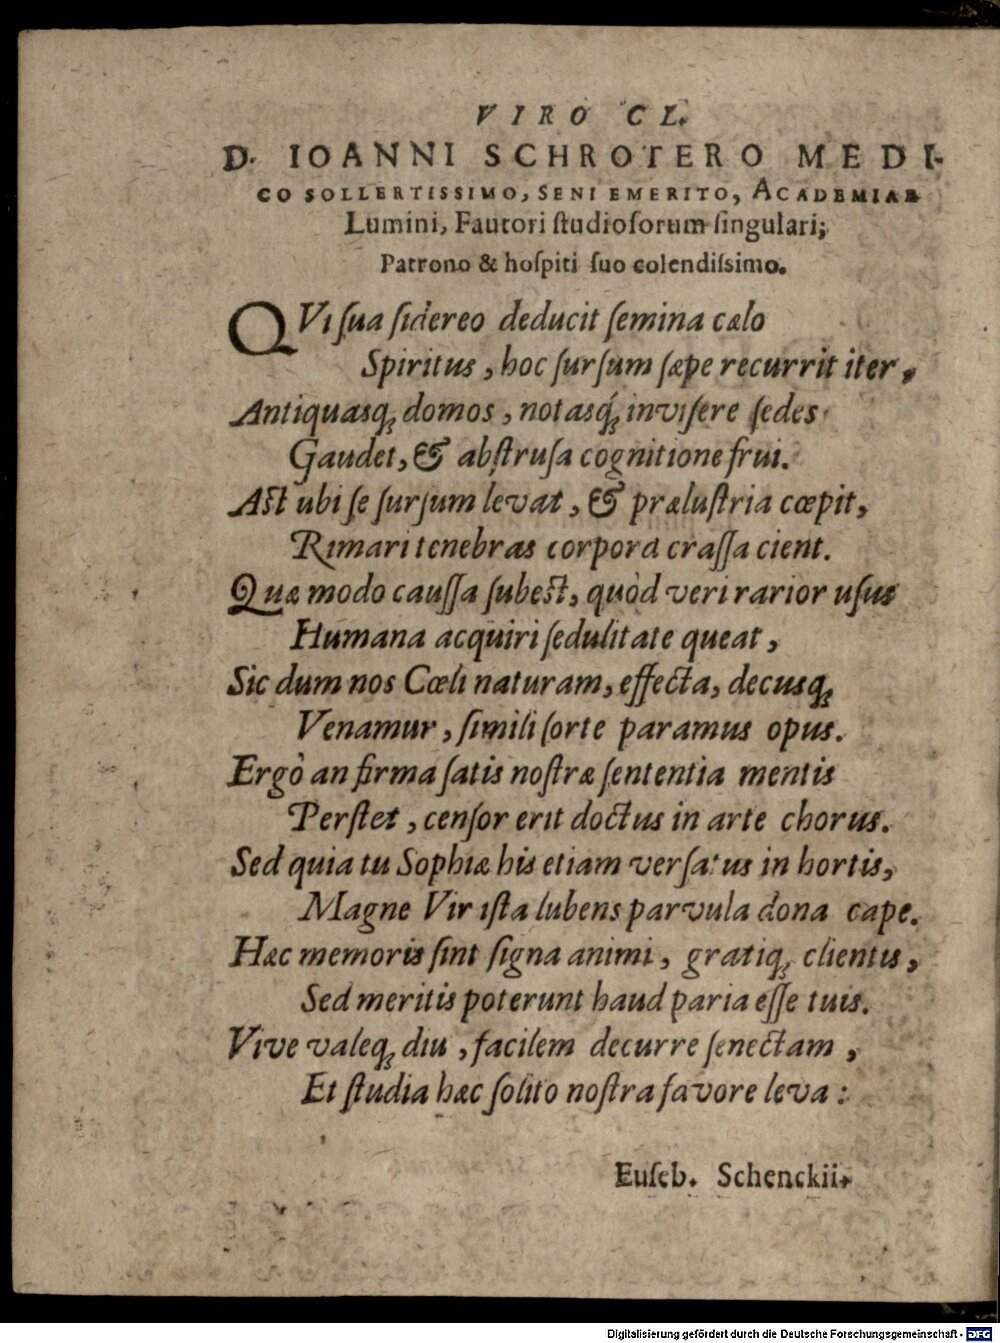 VIRO CL.
D. IOANNI SCHROTERO MEDI-
CO SOLLERTISSIMO, SENI EMERITO, ACADEMIAE
Lumini, Fautori ſtudioſorum ſingulari;
Patrono & hoſpiti ſuo colendiſsimo.
QVi ſua ſidereo deducit ſemina cælo
Spiritus, hoc ſurſum ſæpe recurrit iter,
Antiquasq; domos, notasq́; inviſere ſedes
Gaudet, & abſtruſa cognitione frui.
Aſt ubi ſe ſurſum levat, & præluſtria cœpit,
Rimari tenebras corpora craſſa cient.
Quæ modo cauſſa ſubeſt, quòd veri rarior uſus
Humana acquiri ſedulitate queat,
Sic dum nos Cœli naturam, effecta, decusq;
Venamur, ſimili ſorte paramus opus.
Ergò an firma ſatis noſtræ ſententia mentis
Perſtet, cenſor erit doctus in arte chorus.
Sed quia tu Sophiæ his etiam verſatus in hortis,
Magne Vir iſta lubens parvula dona cape.
Hæc memoris ſint ſigna animi, gratiq; clientis,
Sed meritis poterunt haud paria eſſe tuis.
Vive valeq; diu, facilem decurre ſenectam,
Et ſtudia hæc ſolito noſtra favore leva:
Euſeb. Schenckii.
Digitalisierung gefördert durch die Deutsche Forschungsgemeinschaft - DFG